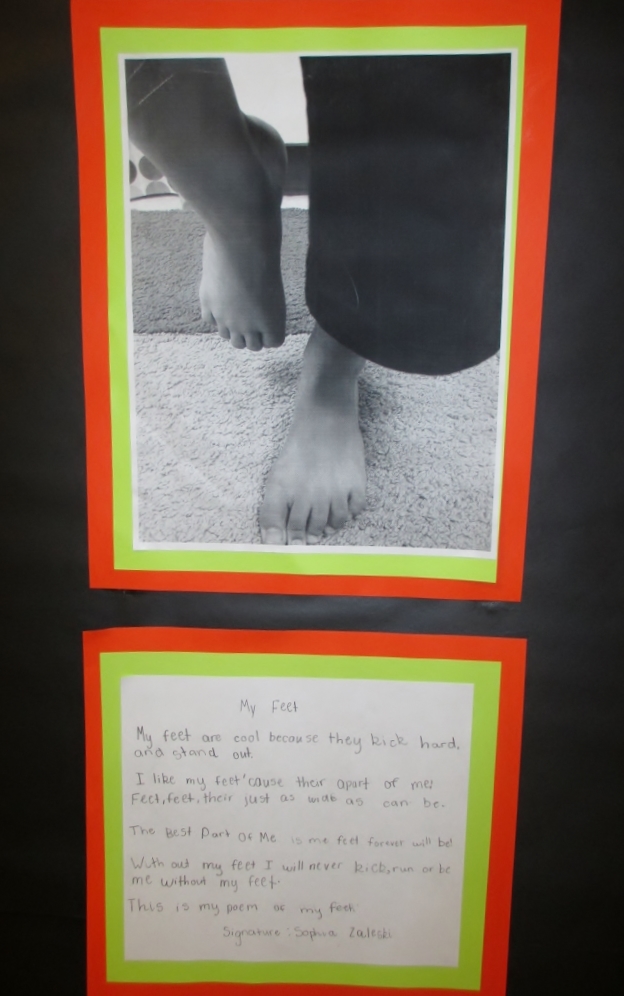 My Feet
My feet are cool because they kick hard,
and stand out.
I like my feet 'cause their apart of me!
Feet, feet, their just as wide as can be.
The Best Part Of Me is me feet forever will be!
With out my feet I will never kick, run or be
me without my feet.
This is my poem of my feet
Signature: Sophia Zaleski